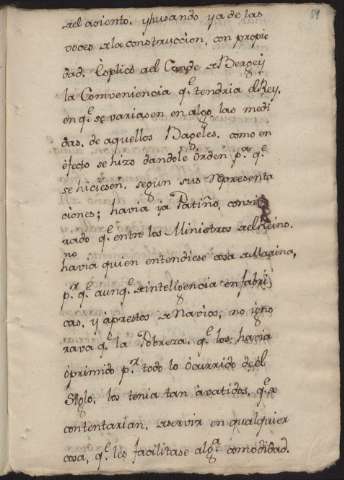 59
del asiento, y husando ya de las
voces a la construccion, con propie
dad. Esplicó ael Conde de Bergeÿ
la Combeniencia q.e tendria el Rey,
en q.e se variasen en algo, las medi
das, de aquellos Bageles, como en
efecto se hizo dandole orden p.a q.e
se hiciesen, según sus representa
ciones; havia ya Patiño, conside
rado q.e entre los Ministros del Reino.
no
havia quien entendiese cosa de Marina,
p.r q.e aunq.e de inteligencia en fabri
cas, y aprestos de Navios, no igno
rava q.e la Pobreza q.e los, havia
oprimido p.r todo lo ocurrido del
Siglo, los tenia tan avatidos, q.e se
contentarian, a servir en qualquier
cosa, q.e les facilitase alg.a comodidad.